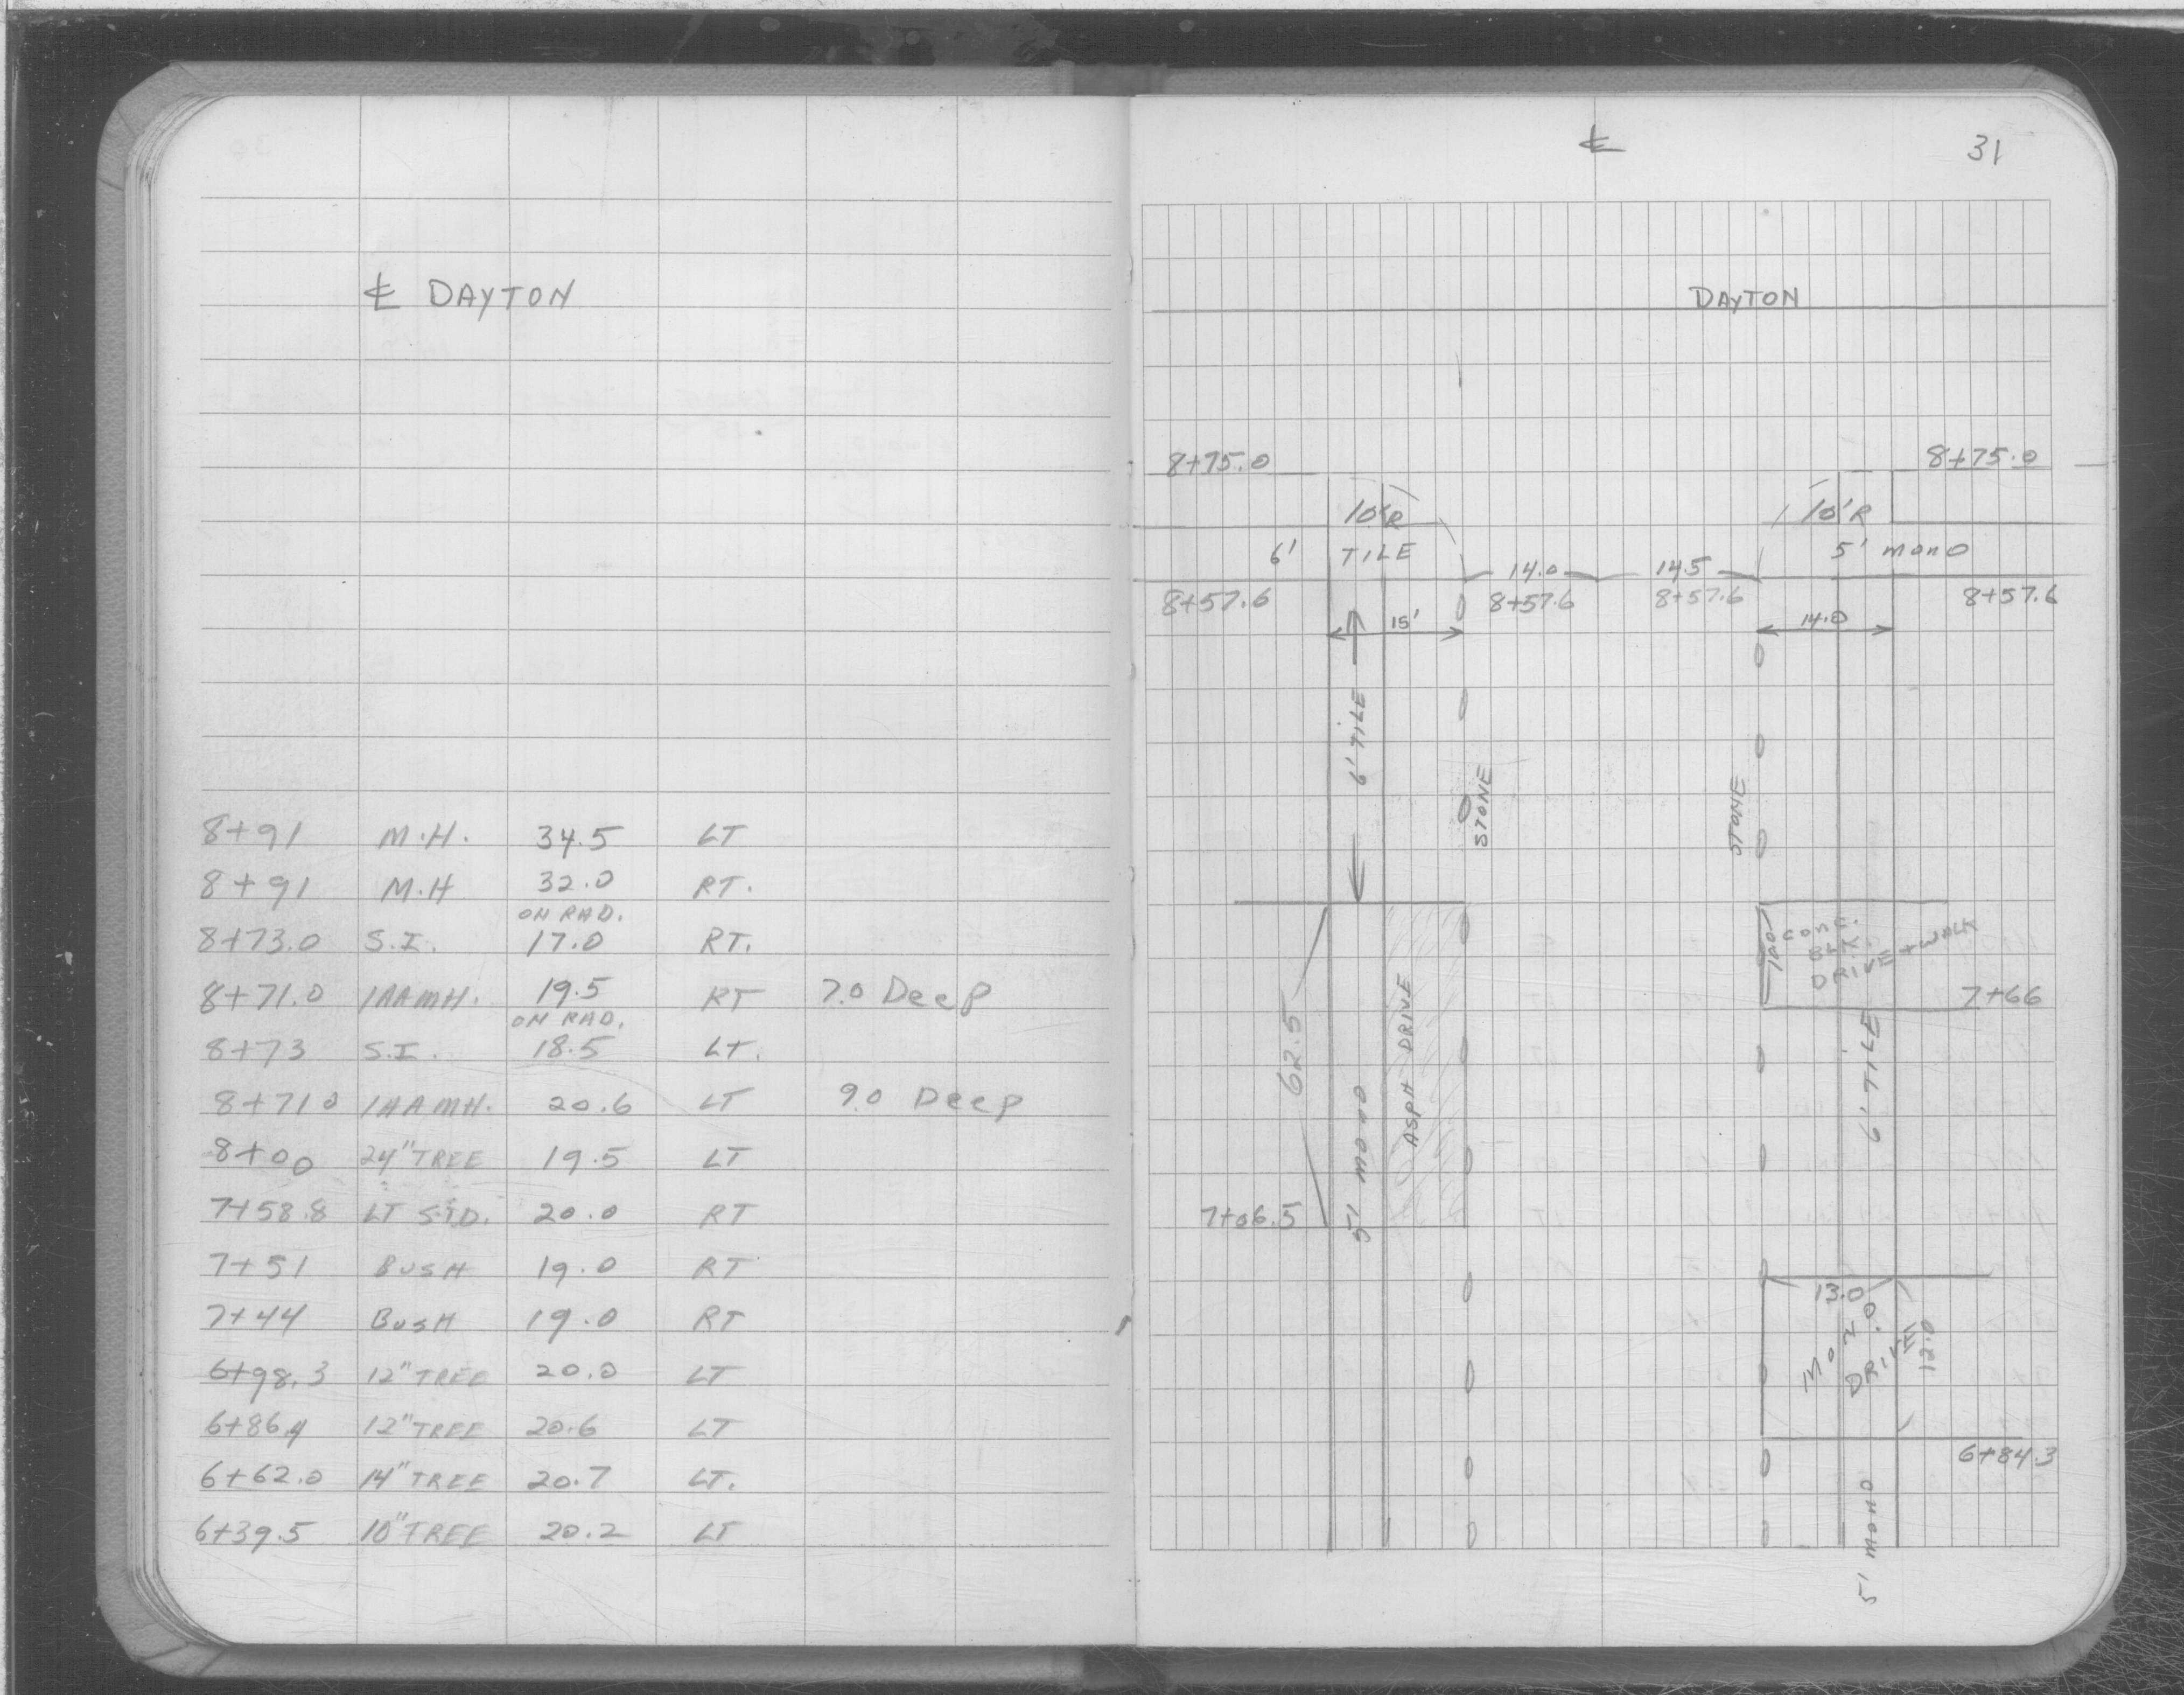 ℄ DAYTON
8+91 M.H. 34.5 LT
8+91 M.H 32.0 RT.
ON RAD.
8+73.0 S.I. 17.0 RT.
8+71.0 19.5 RT 7.0 Deep
ON RAD.
8+73 S.I. 18.5 LT.
8+71.0 20.6 LT 9.0 Deep
8+00 24" TREE 19.5 LT
7+58.8 LT STD. 20.0 RT
7+51 BUSH 19.0 RT
7+44 BUSH 19.0 RT
6+98.3 12" TREE 20.0 LT
6+86.4 12" TREE 20.6 LT
6+62.0 14" TREE 20.7 LT.
6+39.5 10" TREE 20.2 LT
℄
31
DAYTON
8+75.0 8+75.0
10'R 10'R
6' TILE 5' mono
14.0 14.5
8+57.6 8+57.6 8+57.6 8+57.6
15' 14.0
6' TILE
STONE
STONE
CONC.
BLK.
DRIVE + WALK
7+66
62.5
ASPH DRIVE
5' MONO
6' TILE
7+06.5
13.0
MONO
DRIVE
6+84.3
5' MONO